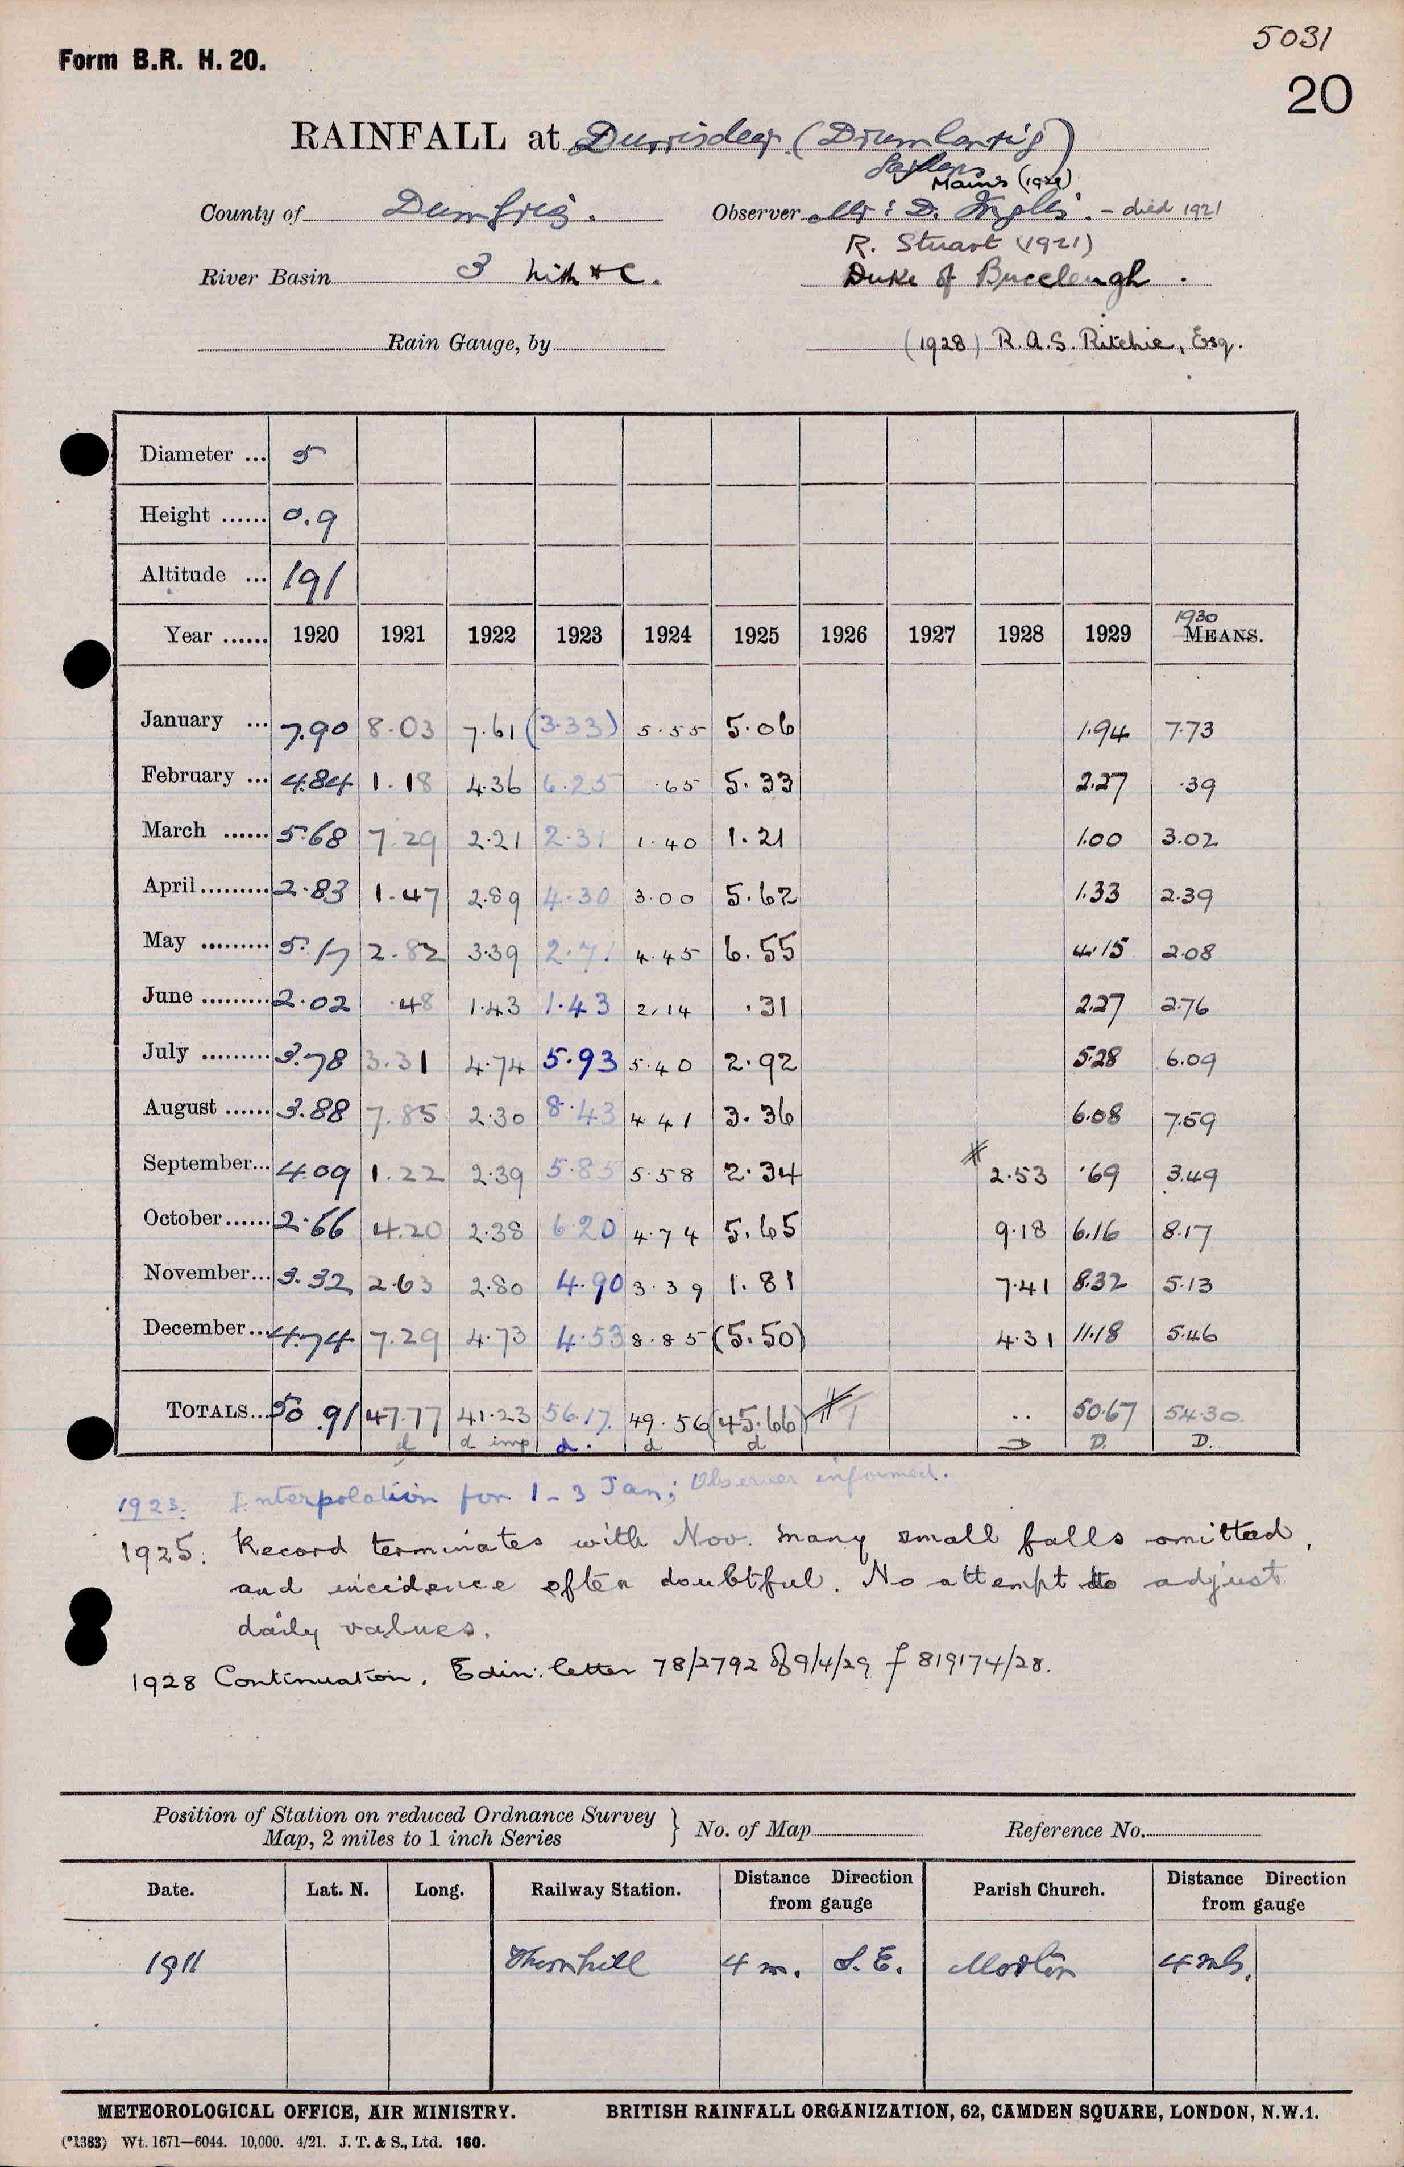 5031
Form B.R. H. 20.
20
RAINFALL at Durrisdeer (Drumlanrig)
Mains (1921)
County of Dumfries. Observer Mr. D. Inglis. - died 1921
R. Stuart (1921)
River Basin 3 Nith &C. Duke of Buccleugh.
Rain Gauge, by (1928) R.A.S. Ritchie, Esq.
Diameter ... 5
Height ...... 0.9
Altitude ... 191
1930
Year ...... 1920 1921 1922 1923 1924 1925 1926 1927 1928 1929 MEANS.
January ... 7.90 8.03 7.61 (3.33) 5.55 5.06 1.94 7.73
February ... 4.84 1.18 4.36 6.25 .65 5.33 2.27 .39
March ...... 5.68 7.29 2.21 2.31 1.40 1.21 1.00 3.02
April ......... 2.83 1.47 2.89 4.30 3.00 5.62 1.33 2.39
May ......... 5.17 2.82 3.39 2.71 4.45 6.55 4.15 2.08
June ......... 2.02 .48 1.43 1.43 2.14 .31 2.27 2.76
July ......... 3.78 3.31 4.74 5.93 5.40 2.92 5.28 6.09
August ...... 3.88 7.85 2.30 8.43 4.41 3.36 6.08 7.59
September... 4.09 1.22 2.39 5.85 5.58 2.34 2.53 .69 3.49
October...... 2.66 4.20 2.38 6.20 4.74 5.65 9.18 6.16 8.17
November... 3.32 2.63 2.80 4.90 3.39 1.81 7.41 8.32 5.13
December... 4.74 7.29 4.73 4.53 8.85 (5.50) 4.31 11.18 5.46
TOTALS... 50.91 47.77 41.23 56.17 49.56 (45.66) .. 50.67 54.30
d d imp d. d d D D. D.
1923. Interpolation for 1-3 Jan; Observer informed.
1925. Record terminates with Nov. Many small falls omitted,
and incidence often doubtful. No attempt to adjust
daily values.
1928 Continuation. Edin: letter 78/2792 of 9/4/29 f 819174/28.
Position of Station on reduced Ordnance Survey
Map, 2 miles to 1 inch Series } No. of Map Reference No.
Date. Lat. N. Long. Railway Station. Distance Direction from gauge Parish Church. Distance Direction from gauge
1911 Thornhill 4 m. S.E. Morton 4 mls.
METEOROLOGICAL OFFICE, AIR MINISTRY. BRITISH RAINFALL ORGANIZATION, 62, CAMDEN SQUARE, LONDON, N.W.1.
(*1383) Wt. 1671—6044. 10,000. 4/21. J. T. & S., Ltd. 160.